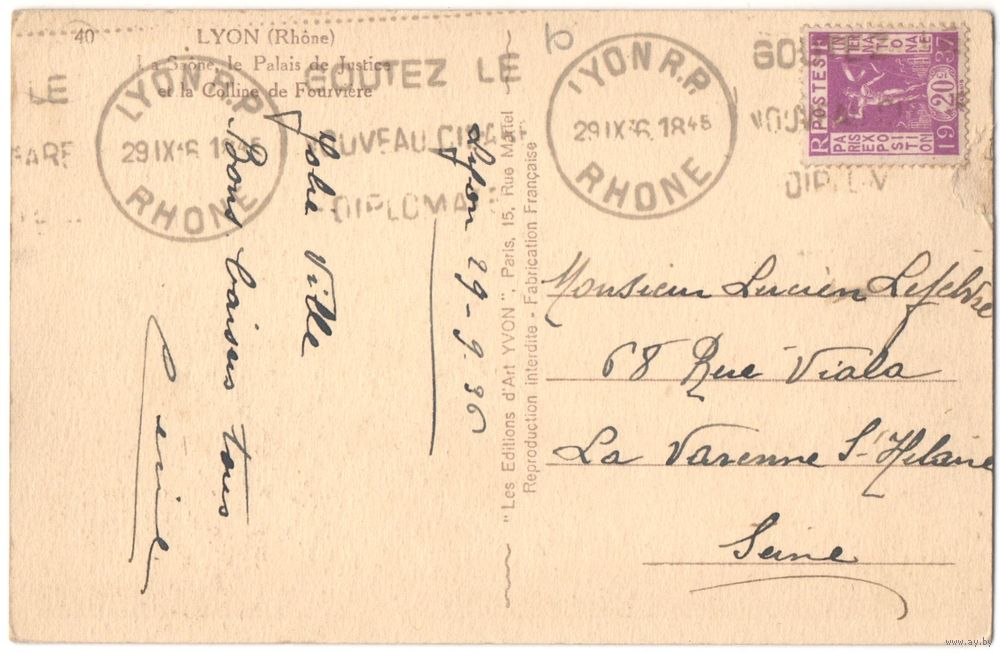 40
LYON (Rhône)
La Saône, le Palais de Justice
et la Colline de Fourvière
LYON R.P.
29 IX 36 1845
RHONE
GOUTEZ LE
NOUVEAU CIGARE
DIPLOMATE
LE
GARE
LYON R.P.
29 IX 36 1845
RHONE
GOUTEZ
NOUVEAU
DIPLOM
POSTES
RF
INTERNATIONALE
PARIS EXPOSITION
20c
1937
Lyon 29-9-36
Jolie Ville
Bons baisers tous
"Les Editions d'Art YVON", Paris, 15, Rue Martel
Reproduction interdite - Fabrication Française
Monsieur Lucien Lefebvre
68 Rue Viala
La Varenne St-Hilaire
Seine
www.ay.by